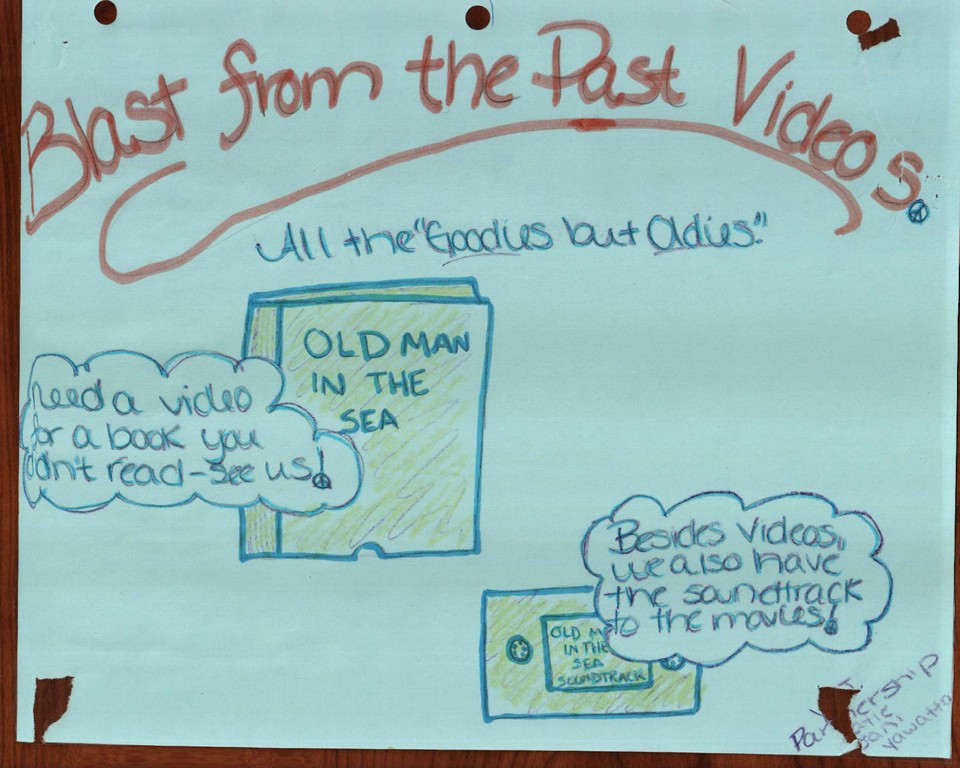 Blast from the Past Videos.
All the "Goodies but Oldies."
OLD MAN
IN THE
SEA
Need a video
for a book you
didn't read - see us!
Besides Videos,
we also have
the soundtrack
to the movies!
OLD
IN THE
SEA
SOUNDTRACK
Jami
Yawatta